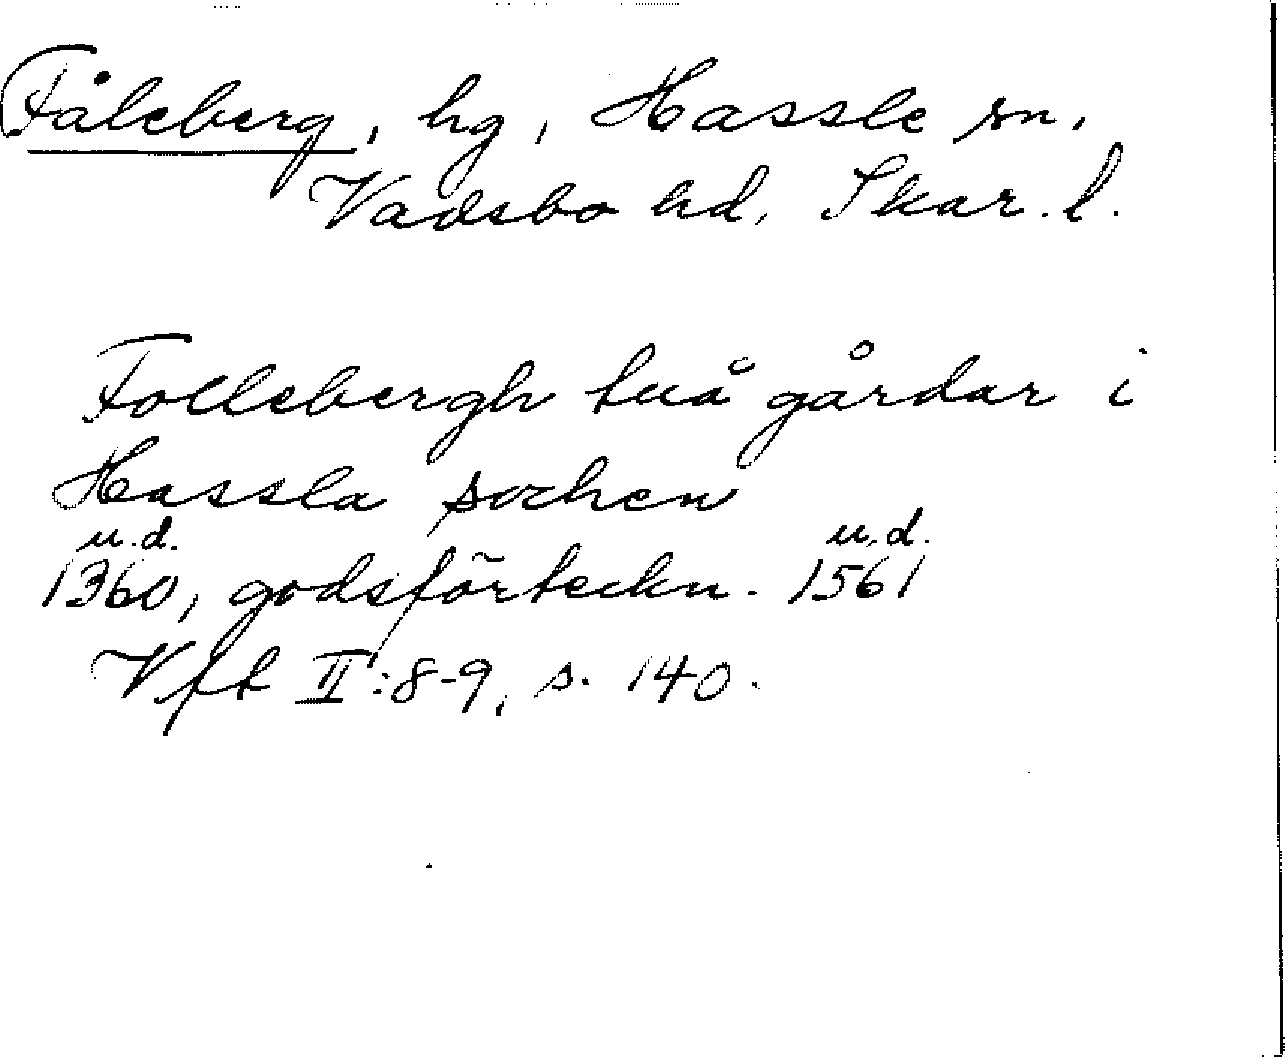 Fåleberg, hg, Hassle sn.
Vadsbo hd, Skar. l.
Follebergh tuå gårdar i
Hassla sochen
u.d. u.d.
1360, godsförteckn. 1561
Vft II:8-9, s. 140.